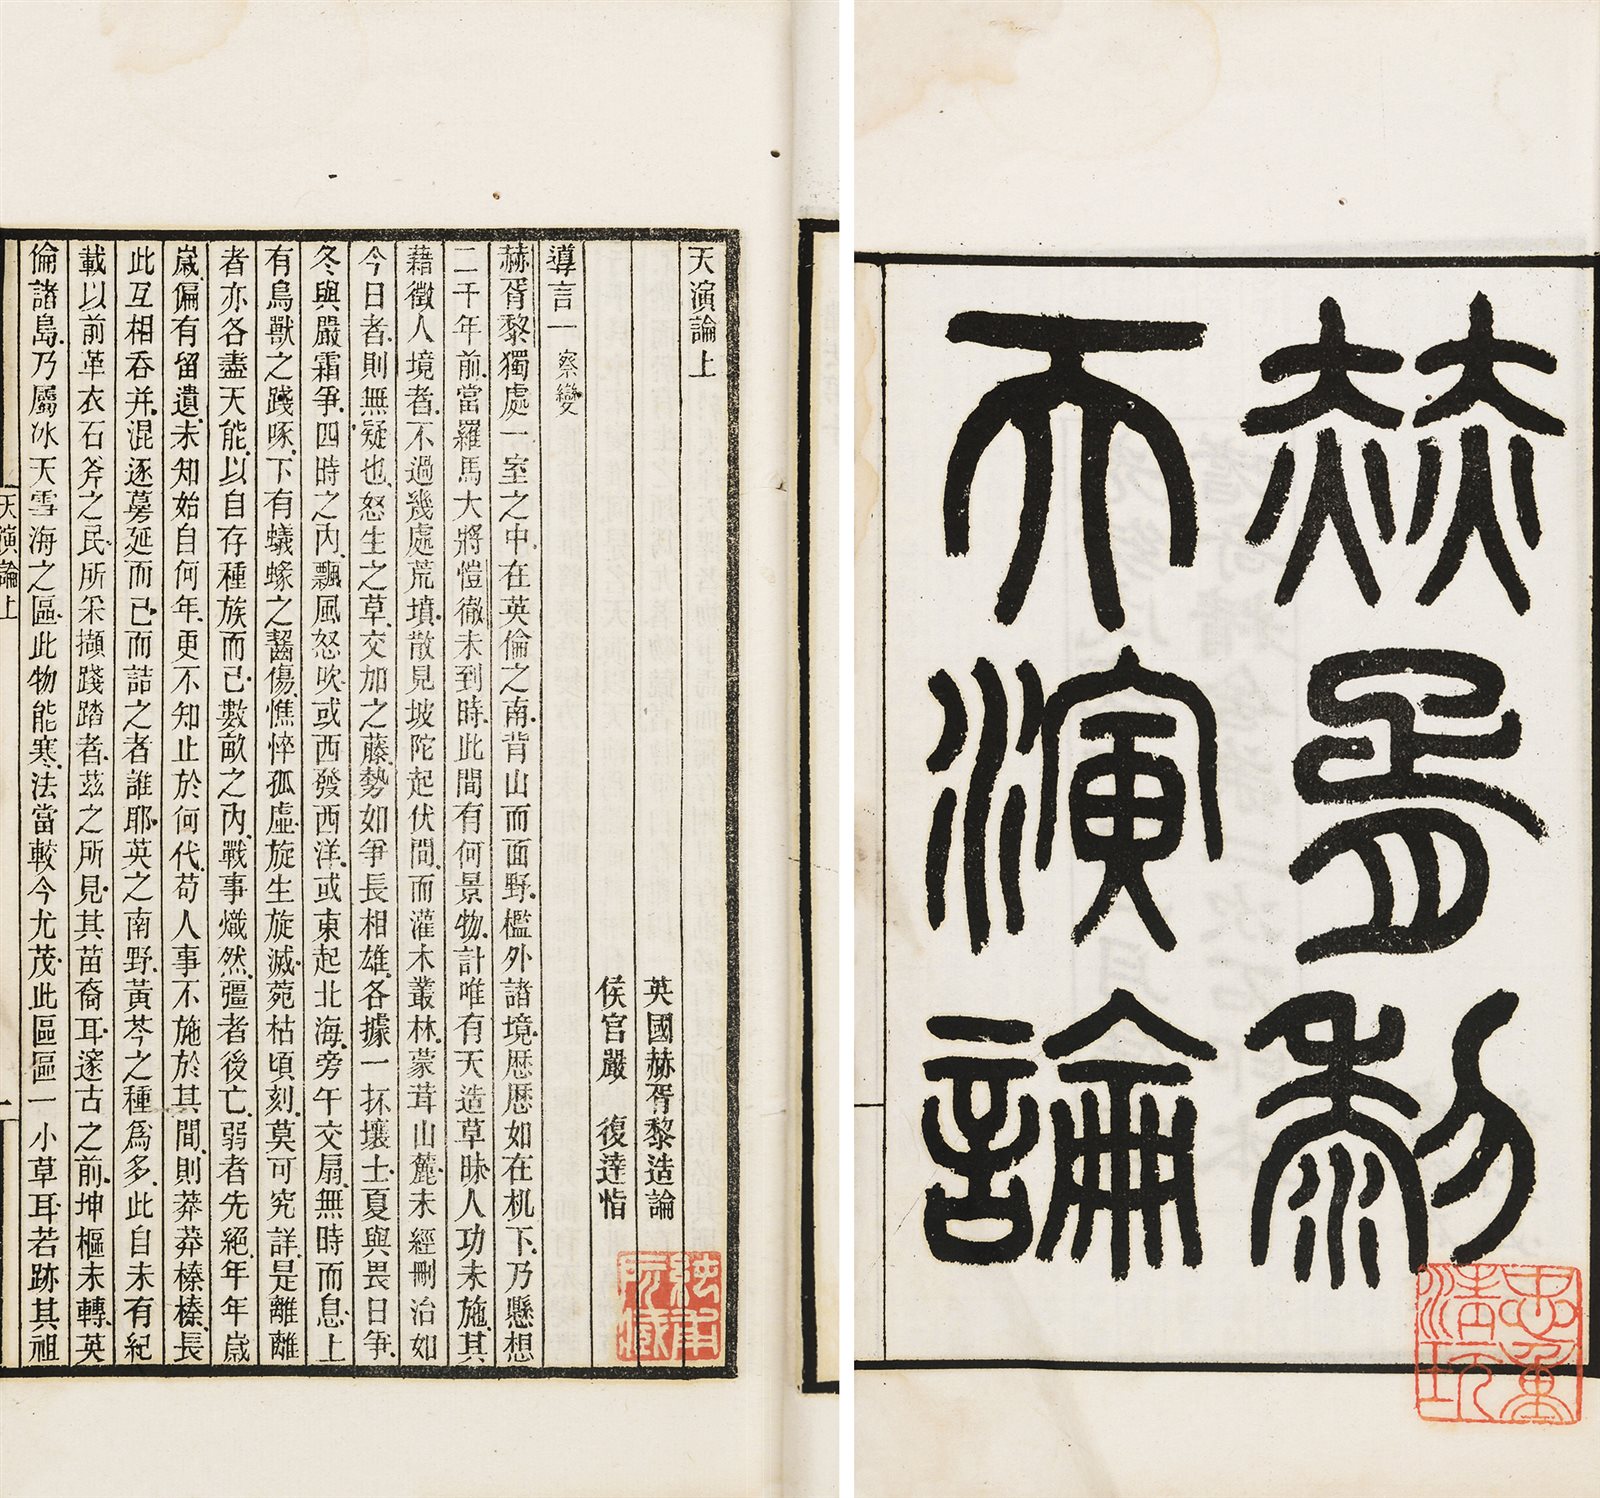 赫胥黎
天演論
天演論上
英國赫胥黎造論
侯官嚴　復達恉
導言一 察變
赫胥黎獨處一室之中、在英倫之南、背山而面野、檻外諸境、歷歷如在机下、乃懸想
二千年前、當羅馬大將愷徹未到時、此間有何景物、計唯有天造草昧、人功未施、其
藉徵人境者、不過幾處荒墳、散見坡陀起伏間、而灌木叢林、蒙茸山麓、未經刪治如
今日者、則無疑也、怒生之草、交加之藤、勢如爭長相雄、各據一抔壤土、夏與畏日爭、
冬與嚴霜爭、四時之內、飄風怒吹、或西發西洋、或東起北海、旁午交扇、無時而息、上
有鳥獸之踐啄、下有蟻蝝之齧傷、憔悴孤虛、旋生旋滅、菀枯頃刻、莫可究詳、是離離
者亦各盡天能、以自存種族而已、數畝之內、戰事熾然、彊者後亡、弱者先絕、年年歲
歲、偏有留遺、未知始自何年、更不知止於何代、苟人事不施於其間、則莽莽榛榛、長
此互相吞并、混逐蔓延而已、而詰之者誰耶、英之南野、黃芩之種爲多、此自未有紀
載以前、革衣石斧之民、所采擷踐踏者、茲之所見、其苗裔耳、邃古之前、坤樞未轉、英
倫諸島、乃屬冰天雪海之區、此物能寒、法當較今尤茂、此區區一小草耳、若跡其祖
天演論上
一